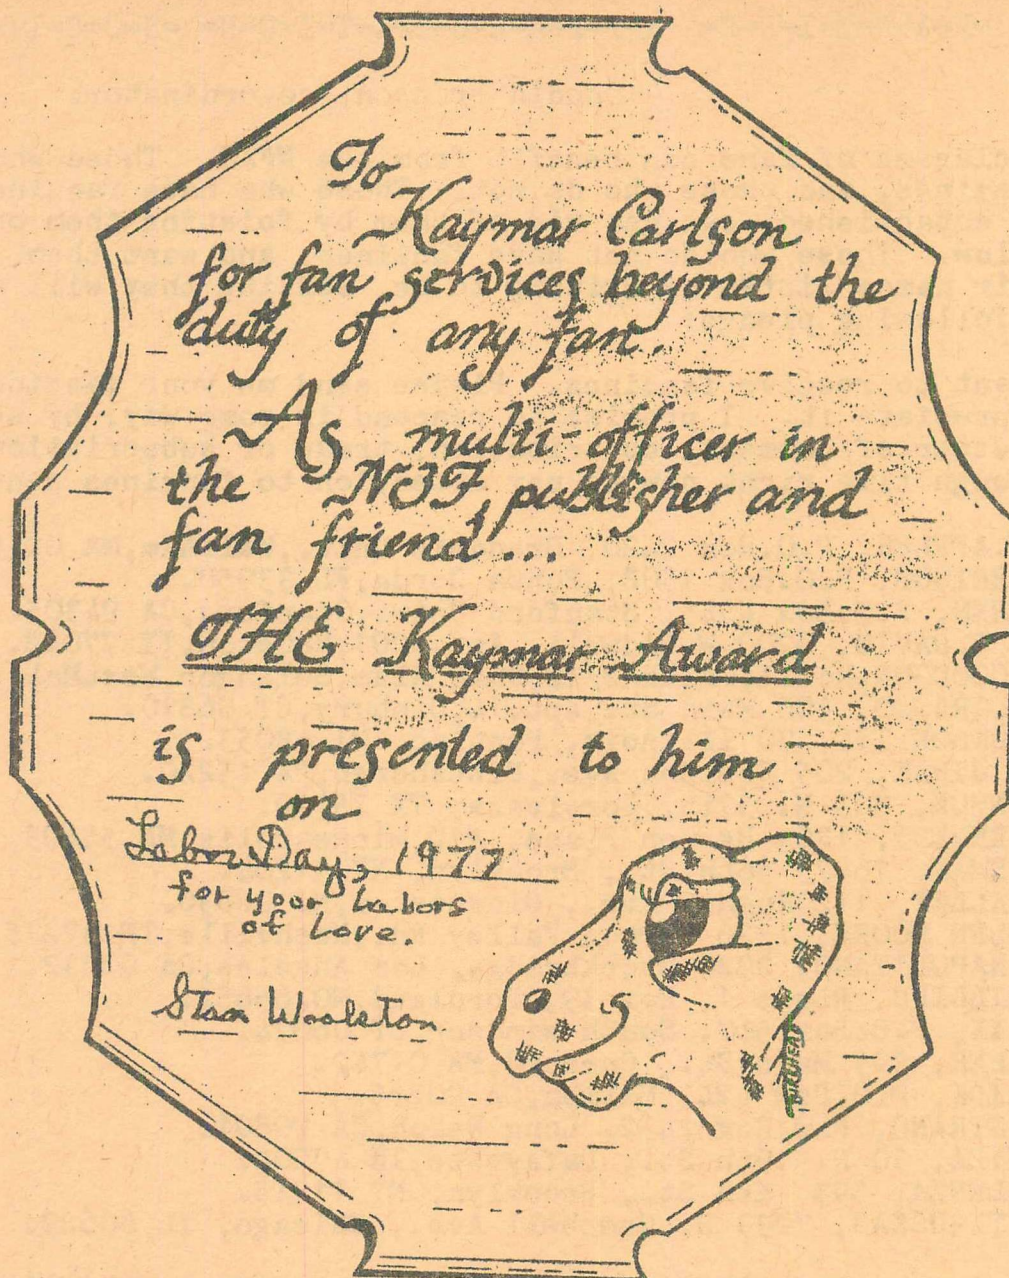 To
Kaymar Carlson
for fan services beyond the
duty of any fan.
As multi-officer in
the N3F, publisher and
fan friend...
THE Kaymar Award
is presented to him
on
Labor Day, 1977
for your labors
of Love.
Stan Woolston